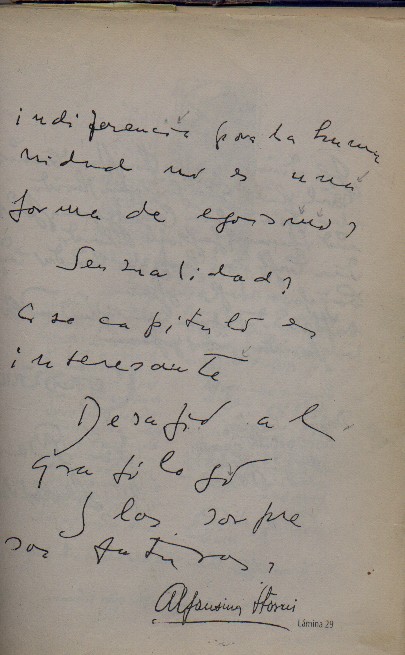 indiferencia por la huma
nidad no es una
forma de egoismo?
Sensualidad?
Ese capitulo es
interesante
Desafio al
grafologo
y las sorpre
sas futuras,
Alfonsina Storni
Lámina 29